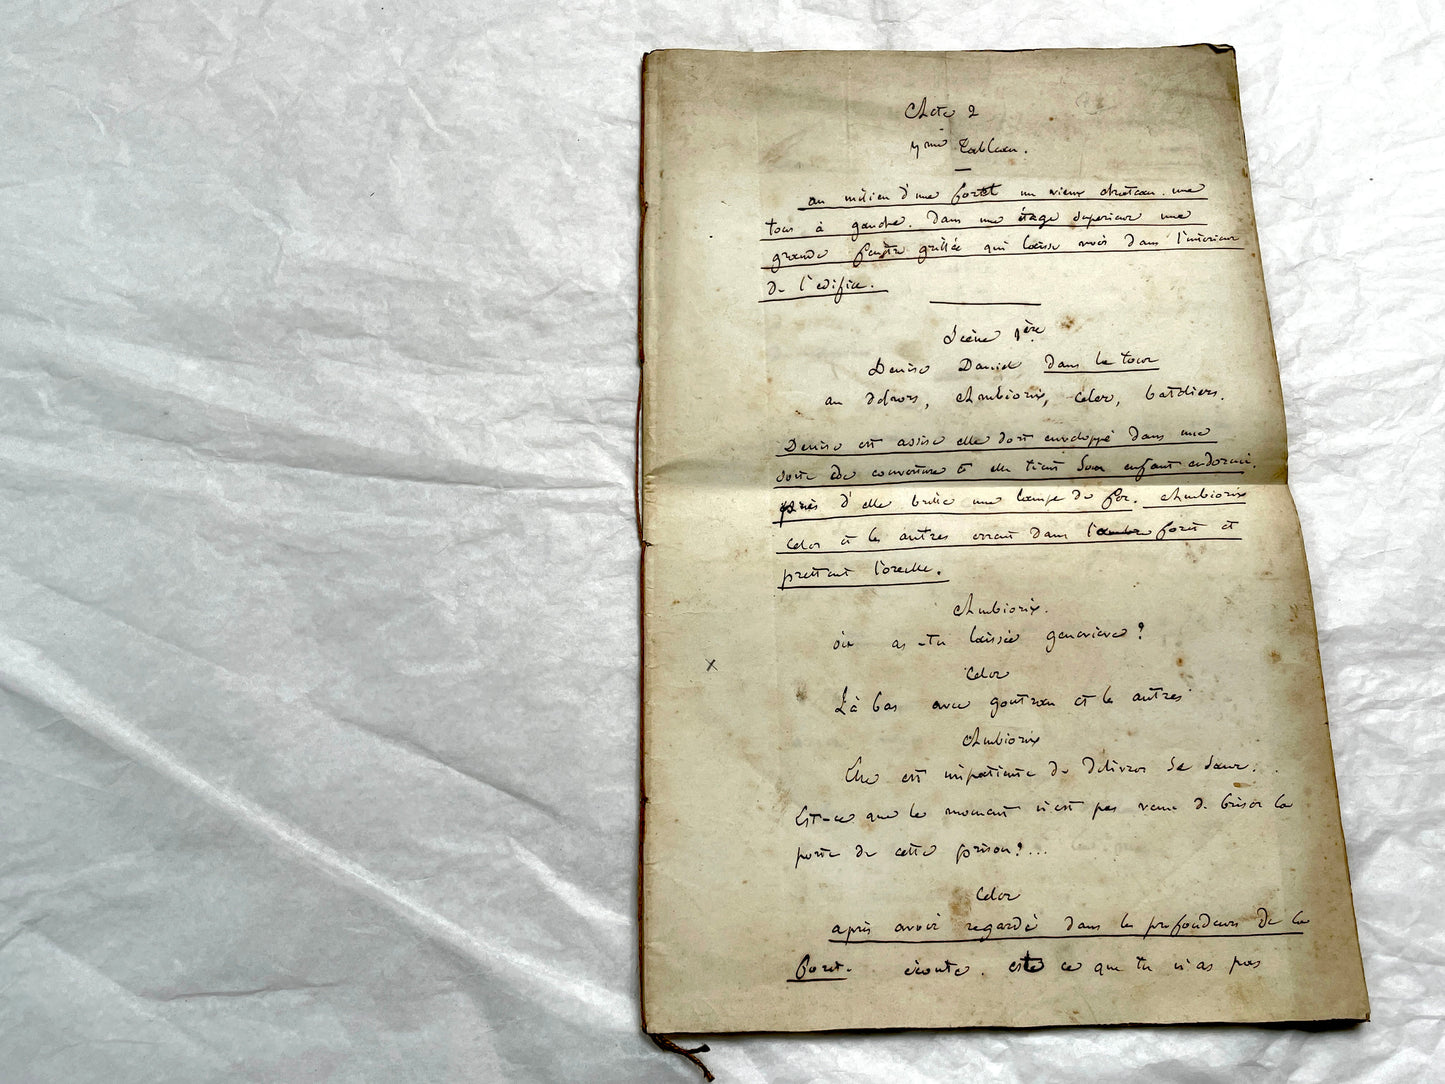 Acte 2
Tableau.
au milieu d'une forêt un vieux chateau. une
tour à gauche. Dans une étage superieur une
grande fenêtre grillée qui laisse voir dans l'interieur
de l'edifice.
Scène 1ère
Denise Daniel dans la tour
au dehors, Ambiorix, Celor, bateliers.
Denise est assise elle dort enveloppé dans une
sorte de couverture et elle tient son enfant endormi.
près d'elle brûle une lampe de fer. Ambiorix
Celor et les autres errant dans l'ombre forêt et
prettant l'oreille.
Ambiorix.
où as-tu laissée geneviève?
Celor
Là bas avec gontran et les autres
Ambiorix
Elle est impatiente de délivrer sa sœur...
Est-ce que le moment n'est pas venu de briser la
porte de cette prison?...
Celor
après avoir regardé dans les profondeurs de la
foret. écoute. este ce que tu n'as pas